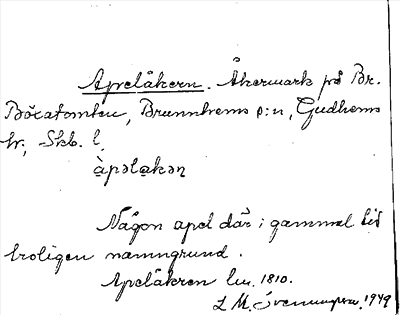 Apelåkern. Åkermark på Br.
Böcatomten, Brunnhems s:n, Gudhems
hr, Skb. l.
àpəlakəņ
Någon apel där i gammal tid
troligen namngrund.
Apelåkren lm. 1810.
L. M. 1949